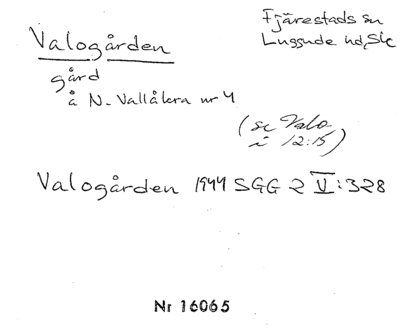 Fjärestads sn
Luggude hd, Sk
Valogården
gård
å N. Vallåkra nr 4
(se Valo
i 12:15)
Valogården 1944 SGG 2 V:328
Nr 16065